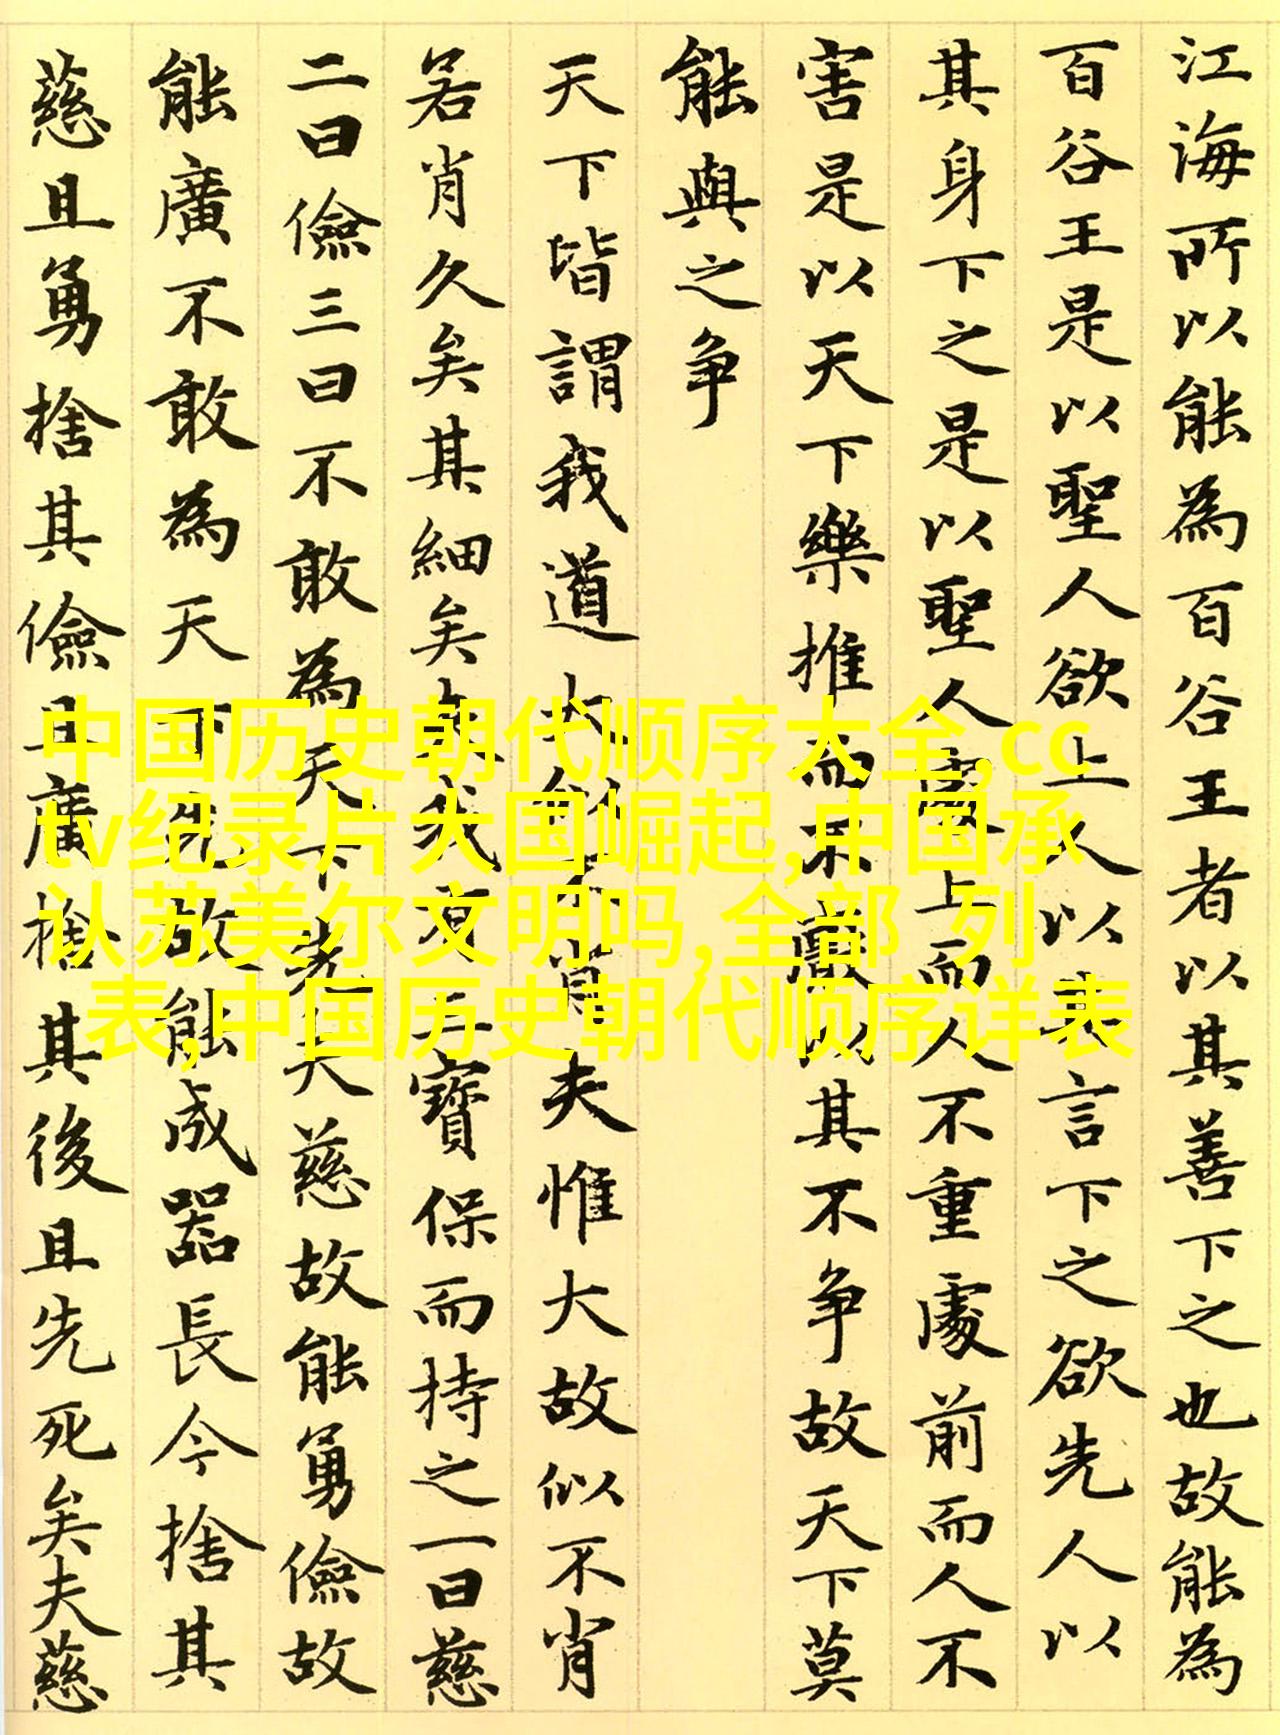 江海所以能為百谷王者以其善下之也故能為
百谷王是以聖人欲上人以其言下之欲先人以
其身下之是以聖人處上而人不重處前而人不
害是以天下樂推而不厭以其不争故天下莫
能與之争
天下皆謂我道大似不肖夫惟大故似不肖
若肖久矣其細矣夫我有三寶保而持之一曰慈
二曰儉三曰不敢為天下先夫慈故能勇儉故
能廣不敢為天下先故能成器長今捨其
慈且勇捨其儉且廣捨其後且先死矣夫慈
中国历史朝代顺序大全,cc
tv纪录片大国崛起,中国承
认苏美尔文明吗,全部 列
表,中国历史朝代顺序详表